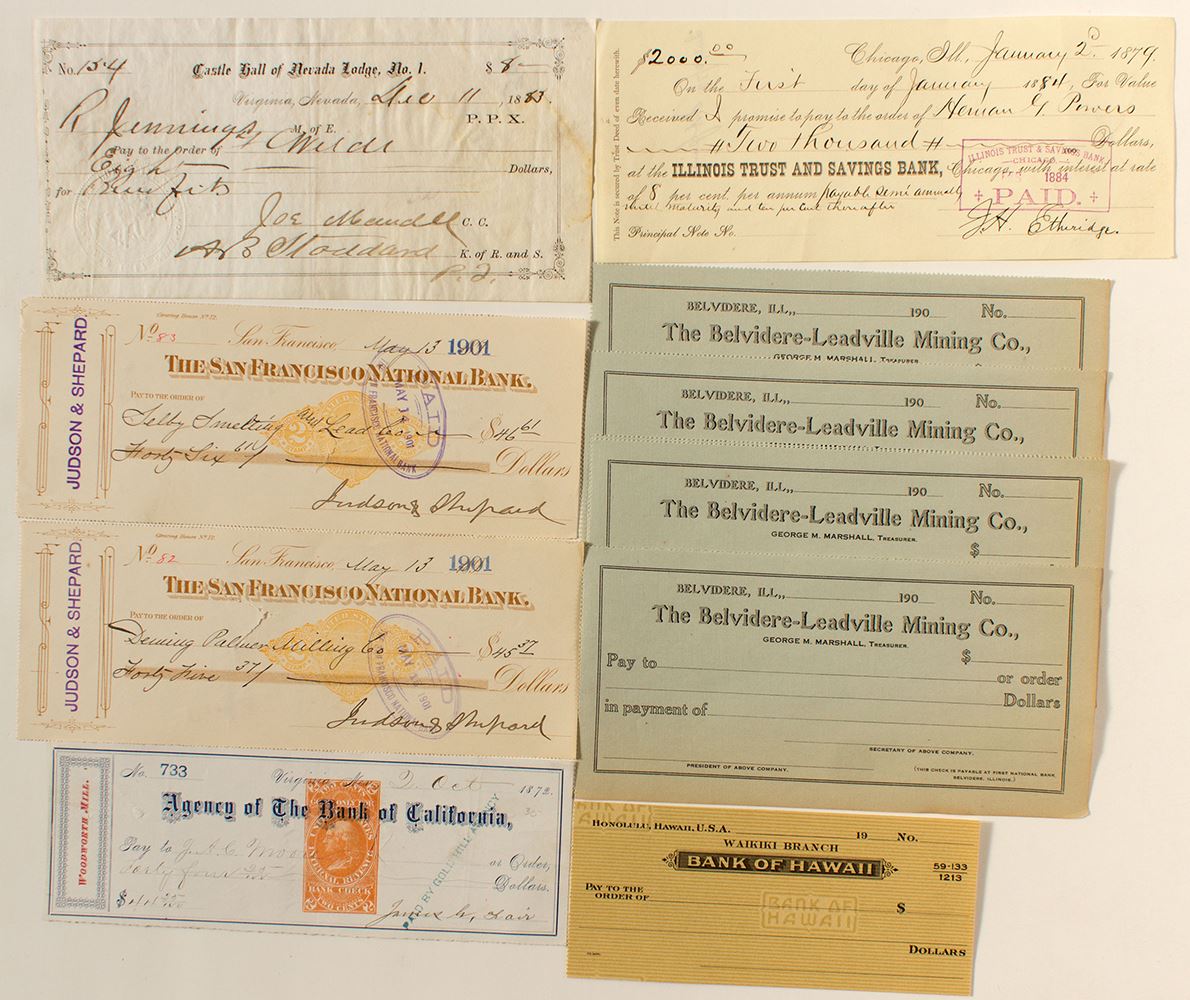 No. 154 Castle Hall of Nevada Lodge, No. 1. $ 8 —
Virginia, Nevada, Dec 11, 1883.
P. P. X.
R Jennings M. of E.
Pay to the Order of Wilde
Eight — Dollars,
for Benefits
Joe Mandell C. C.
A B Stoddard K. of R. and S.
$2000.00 Chicago, Ill., January 2d 1879.
On the First day of January 1884, For Value
Received I promise to pay to the order of Heman G. Powers
# Two Thousand # Dollars,
at the ILLINOIS TRUST AND SAVINGS BANK, Chicago, with interest at rate
of 8 per cent. per annum payable semi annually
until maturity and ten per cent thereafter
Principal Note No.
J. H. Etheridge.
This Note is secured by Trust Deed of even date herewith.
ILLINOIS TRUST & SAVINGS BANK
CHICAGO
1884
PAID.
JUDSON & SHEPARD.
Clearing House No 12.
No. 83 San Francisco, May 13 1901
THE SAN FRANCISCO NATIONAL BANK.
PAY TO THE ORDER OF
Selby Smelting and Lead Co $46 61
Forty Six 61/ Dollars
Judson & Shepard
PAID
MAY 1 1901
SAN FRANCISCO NATIONAL BANK
JUDSON & SHEPARD.
Clearing House No 12.
No. 82 San Francisco, May 13 1901
THE SAN FRANCISCO NATIONAL BANK.
PAY TO THE ORDER OF
Deming Palmer Milling Co $45 37
Forty Five 37/ Dollars
Judson & Shepard
PAID
MAY 1901
SAN FRANCISCO NATIONAL
WOODWORTH MILL.
No. 733 Virginia, 2 Oct 1872.
Agency of The Bank of California,
Pay to J. A. C. or Order,
Forty four Dollars.
$44
James G. Fair
UNITED STATES
INTERNAL REVENUE
BANK CHECK
TWO CENTS
PAID BY GOLD HILL AGENCY
BELVIDERE, ILL., 190 No.
The Belvidere-Leadville Mining Co.,
GEORGE M. MARSHALL, TREASURER.
BELVIDERE, ILL., 190 No.
The Belvidere-Leadville Mining Co.,
BELVIDERE, ILL., 190 No.
The Belvidere-Leadville Mining Co.,
GEORGE M. MARSHALL, TREASURER.
$
BELVIDERE, ILL., 190 No.
The Belvidere-Leadville Mining Co.,
GEORGE M. MARSHALL, TREASURER.
$
Pay to
or order
Dollars
in payment of
SECRETARY OF ABOVE COMPANY.
PRESIDENT OF ABOVE COMPANY.
(THIS CHECK IS PAYABLE AT FIRST NATIONAL BANK, BELVIDERE, ILLINOIS.)
BANK OF
HAWAII
HONOLULU, HAWAII, U.S.A. 19 No.
WAIKIKI BRANCH
BANK OF HAWAII
59-133
1213
PAY TO THE
ORDER OF $
BANK OF
HAWAII
DOLLARS